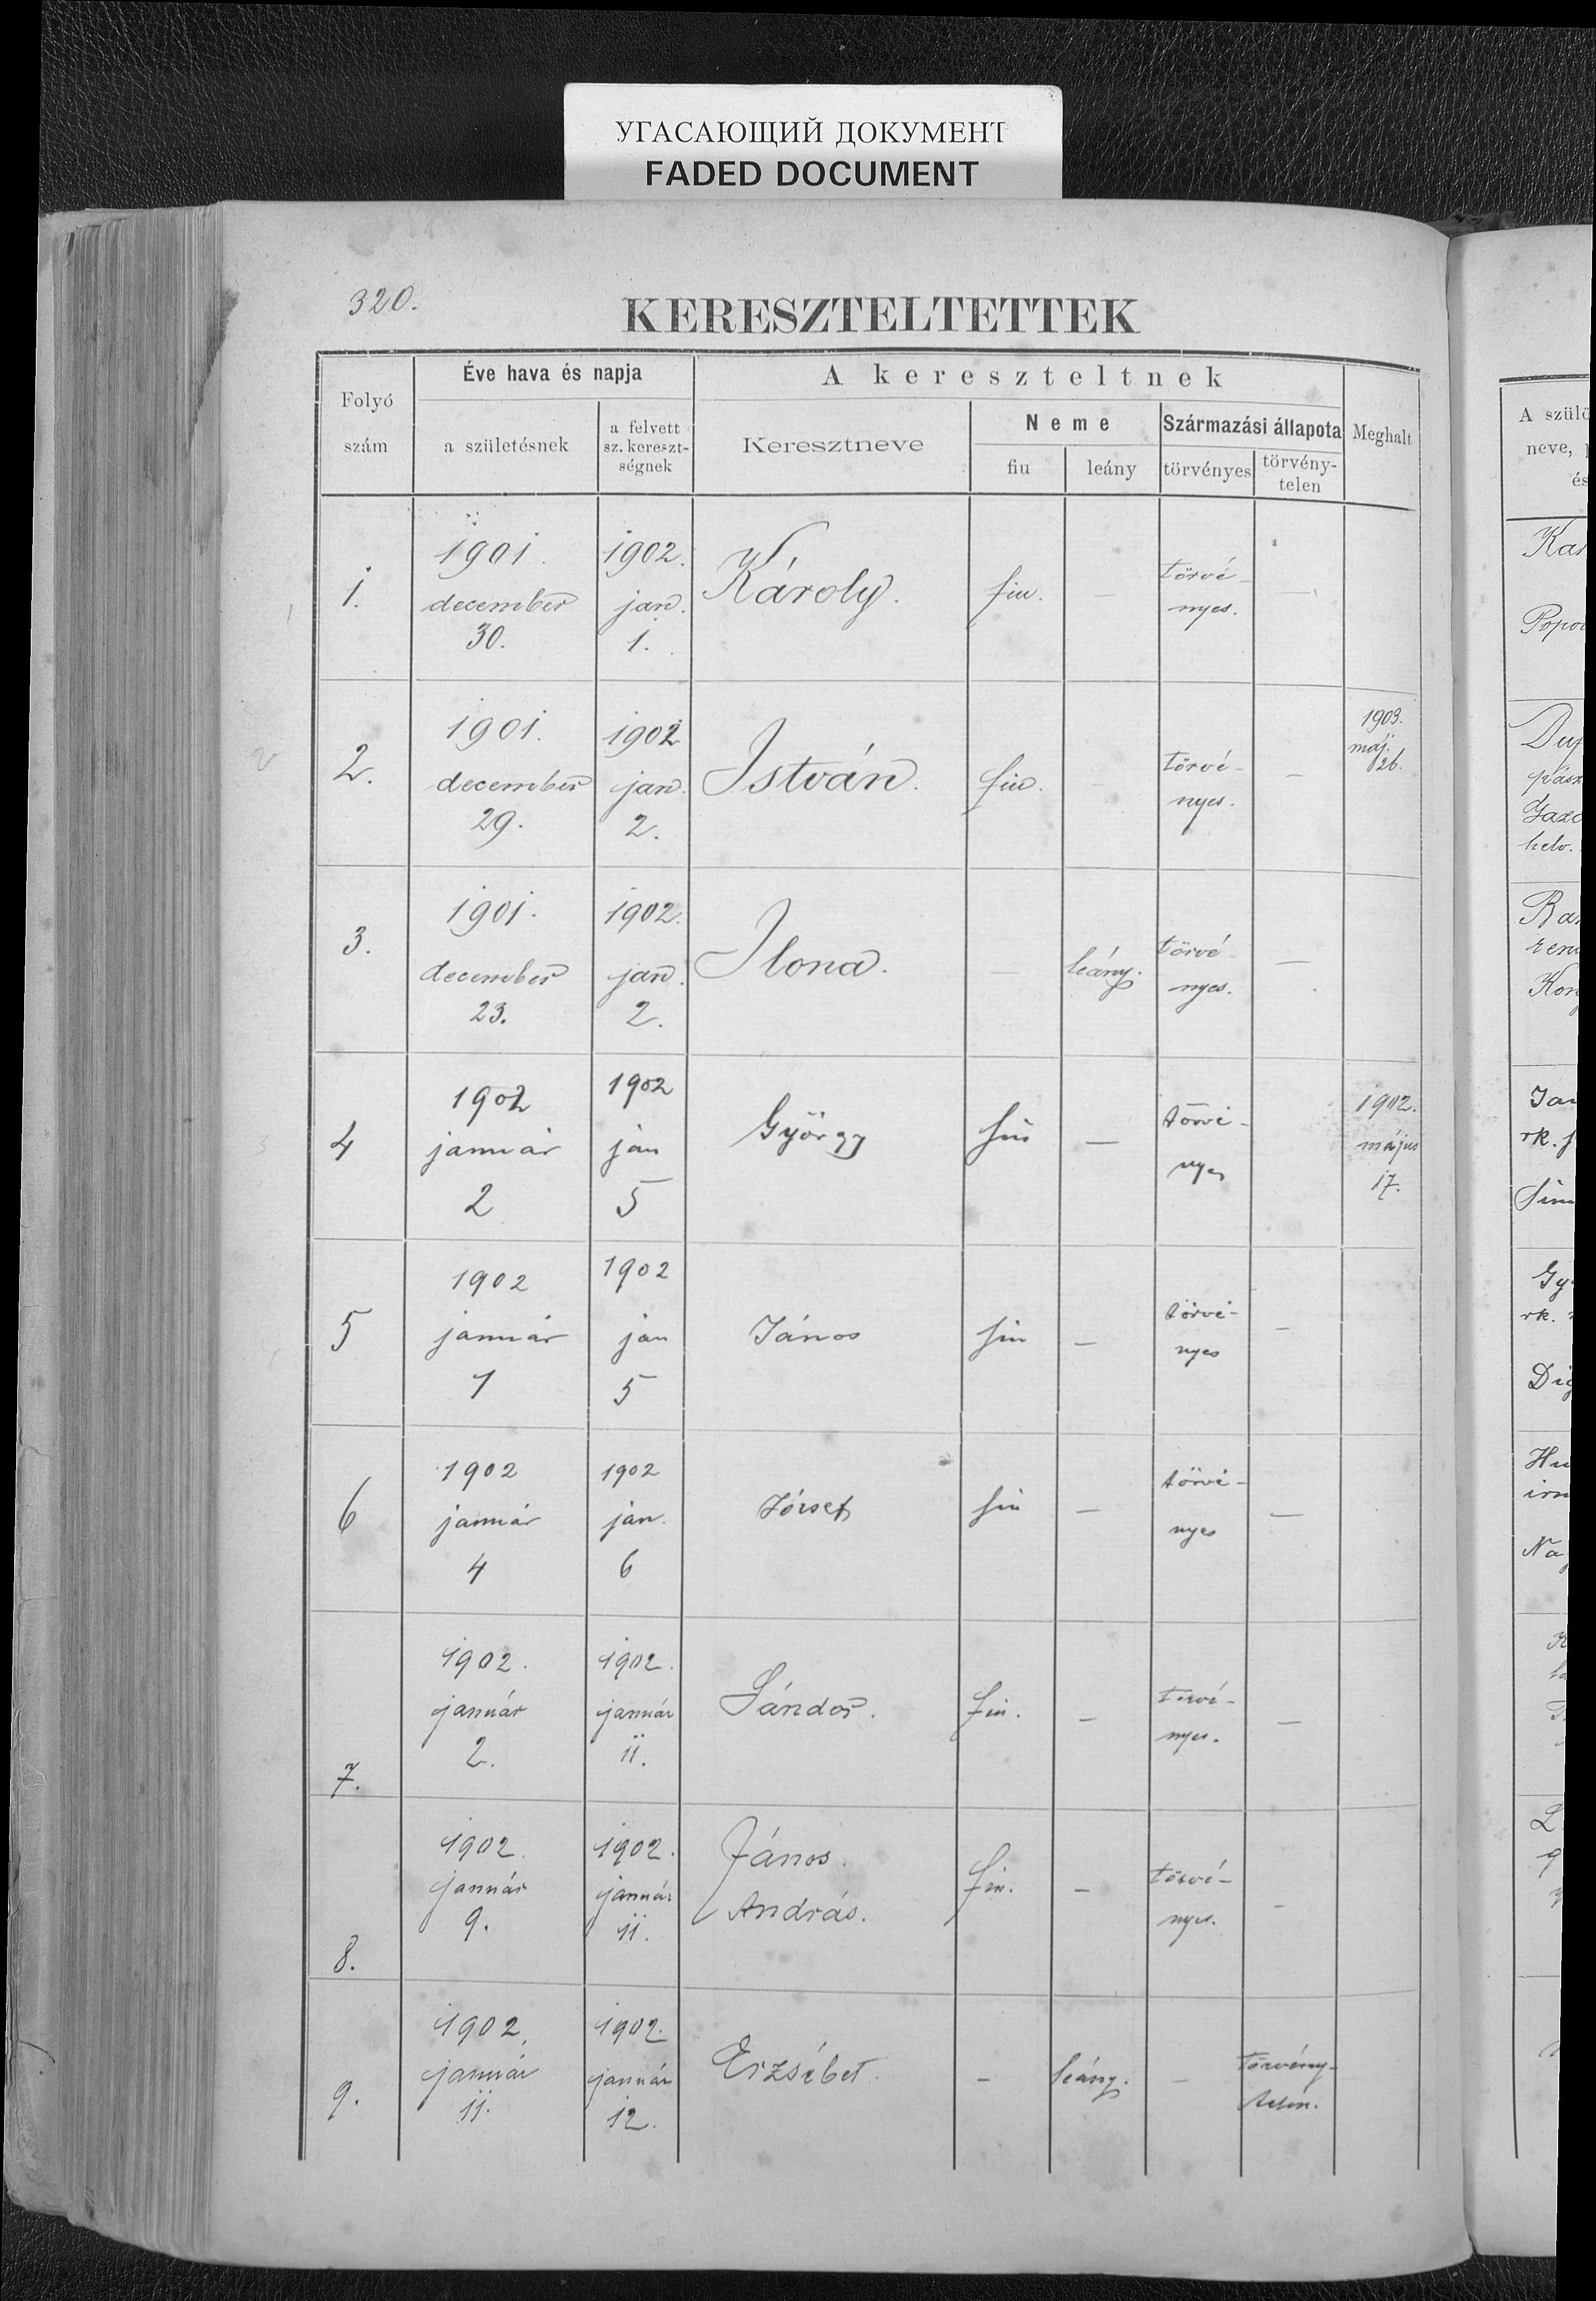 УГАСАЮЩИЙ ДОКУМЕНТ
FADED DOCUMENT
320.
KERESZTELTETTEK
Folyó szám
Éve hava és napja
a születésnek
a felvett sz. kereszt-ségnek
A kereszteltnek
Keresztneve
Neme
fiu
leány
Származási állapota
törvényes
törvény-telen
Meghalt
A szülő
neve,
és
1.
1901.
december
30.
1902.
jan.
1.
Károly.
fiu.
—
törvé-
nyes.
—
2.
1901.
december
29.
1902
jan.
2.
István.
fiu.
törvé-
nyes.
—
1903.
máj.
26.
3.
1901.
december
23.
1902.
jan.
2.
Ilona.
—
leány.
törvé-
nyes.
—
4
1902
január
2
1902
jan
5
György
fiu
—
törvé-
nyes
1902.
május
17.
5
1902
január
1
1902
jan
5
János
fiu
—
törvé-
nyes
—
6
1902
január
4
1902
jan.
6
József
fiu
—
törvé-
nyes
—
7.
1902.
január
2.
1902.
január
11.
Sándor.
fiu.
—
törvé-
nyes.
—
8.
1902.
január
9.
1902.
január
11.
János.
András.
fiu.
—
törvé-
nyes.
—
9.
1902.
január
11.
1902.
január
12.
Erzsébet.
—
leány.
—
törvény-
telen.